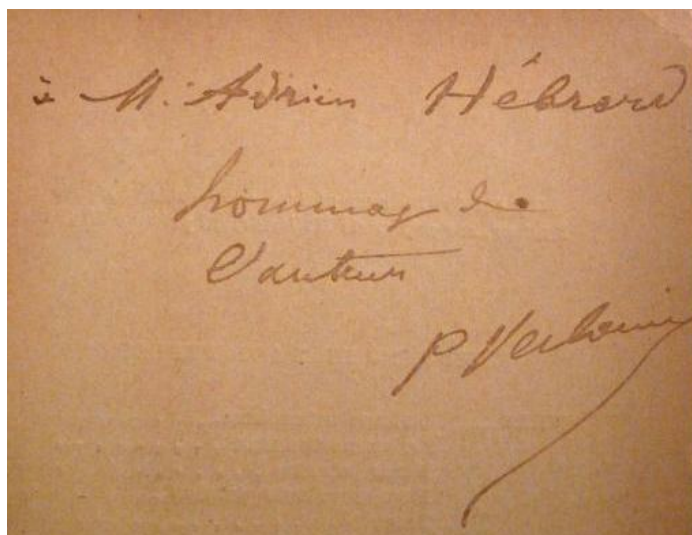 à M. Adrien Hébrard
hommage de
l'auteur
P Verlaine